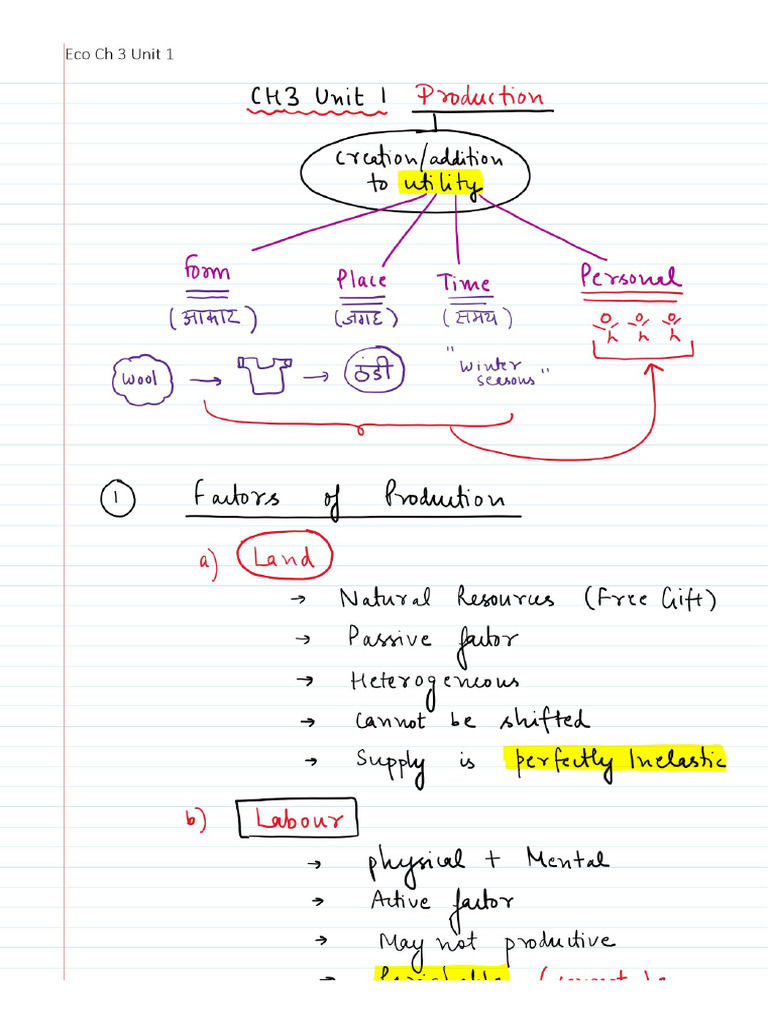 Eco Ch 3 Unit 1
CH3 Unit 1 Production
creation/addition
to utility
Form Place Time Personal
(आकार) (जगह) (समय)
wool → → ठंडी "winter
seasons"
1 Factors of Production
a) Land
→ Natural Resources (Free Gift)
→ Passive factor
→ Heterogeneous
→ Cannot be shifted
→ Supply is perfectly Inelastic
b) Labour
→ physical + Mental
→ Active factor
→ May not productive